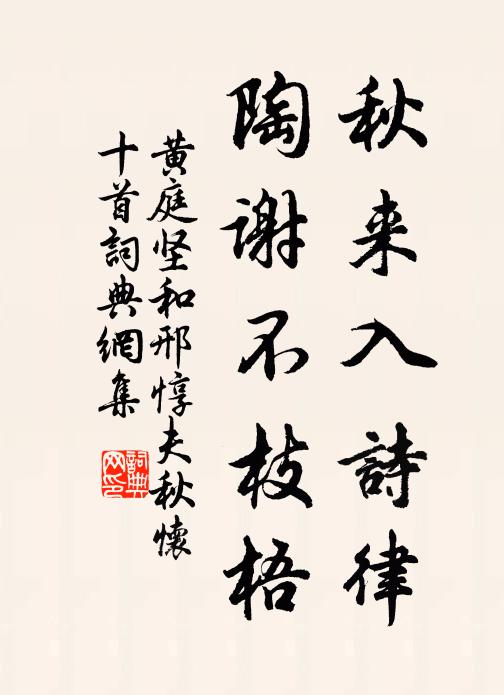 秋来入詩律
陶謝不枝梧
黄庭坚和邢惇夫秋懷
十首詞典網集
詞典网印